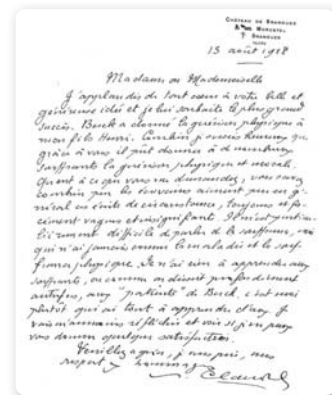 CHÂTEAU DE BRANGUES
MORESTEL
BRANGUES
ISÈRE
13 août 19
Madame ou Mademoiselle
J'applaudis de tout cœur à votre belle et
généreuse idée et je lui souhaite le plus grand
succès. Berck a donné la guérison physique à
mon fils Henri. Combien je serais heureux que
grâce à vous il pût donner à de nombreux
souffrants la guérison physique et morale.
Quant à ce que vous me demandez, vous savez
combien peu les écrivains aiment en gé-
néral ces écrits de circonstance, toujours
vagues et insignifiants. Il m'est
difficile de parler de la souffrance, moi
qui n'ai jamais connu la maladie et la souf-
france physique. Je n'ai rien à apprendre aux
souffrants, ou comme on disait profondément
autrefois, aux "patients" de Berck, c'est moi
plutôt qui ai tout à apprendre d'eux. Je
vais néanmoins réfléchir et voir si je puis
vous donner quelque satisfaction.
Veuillez agréer, je vous prie, mes
respectueux hommages
P. Claudel